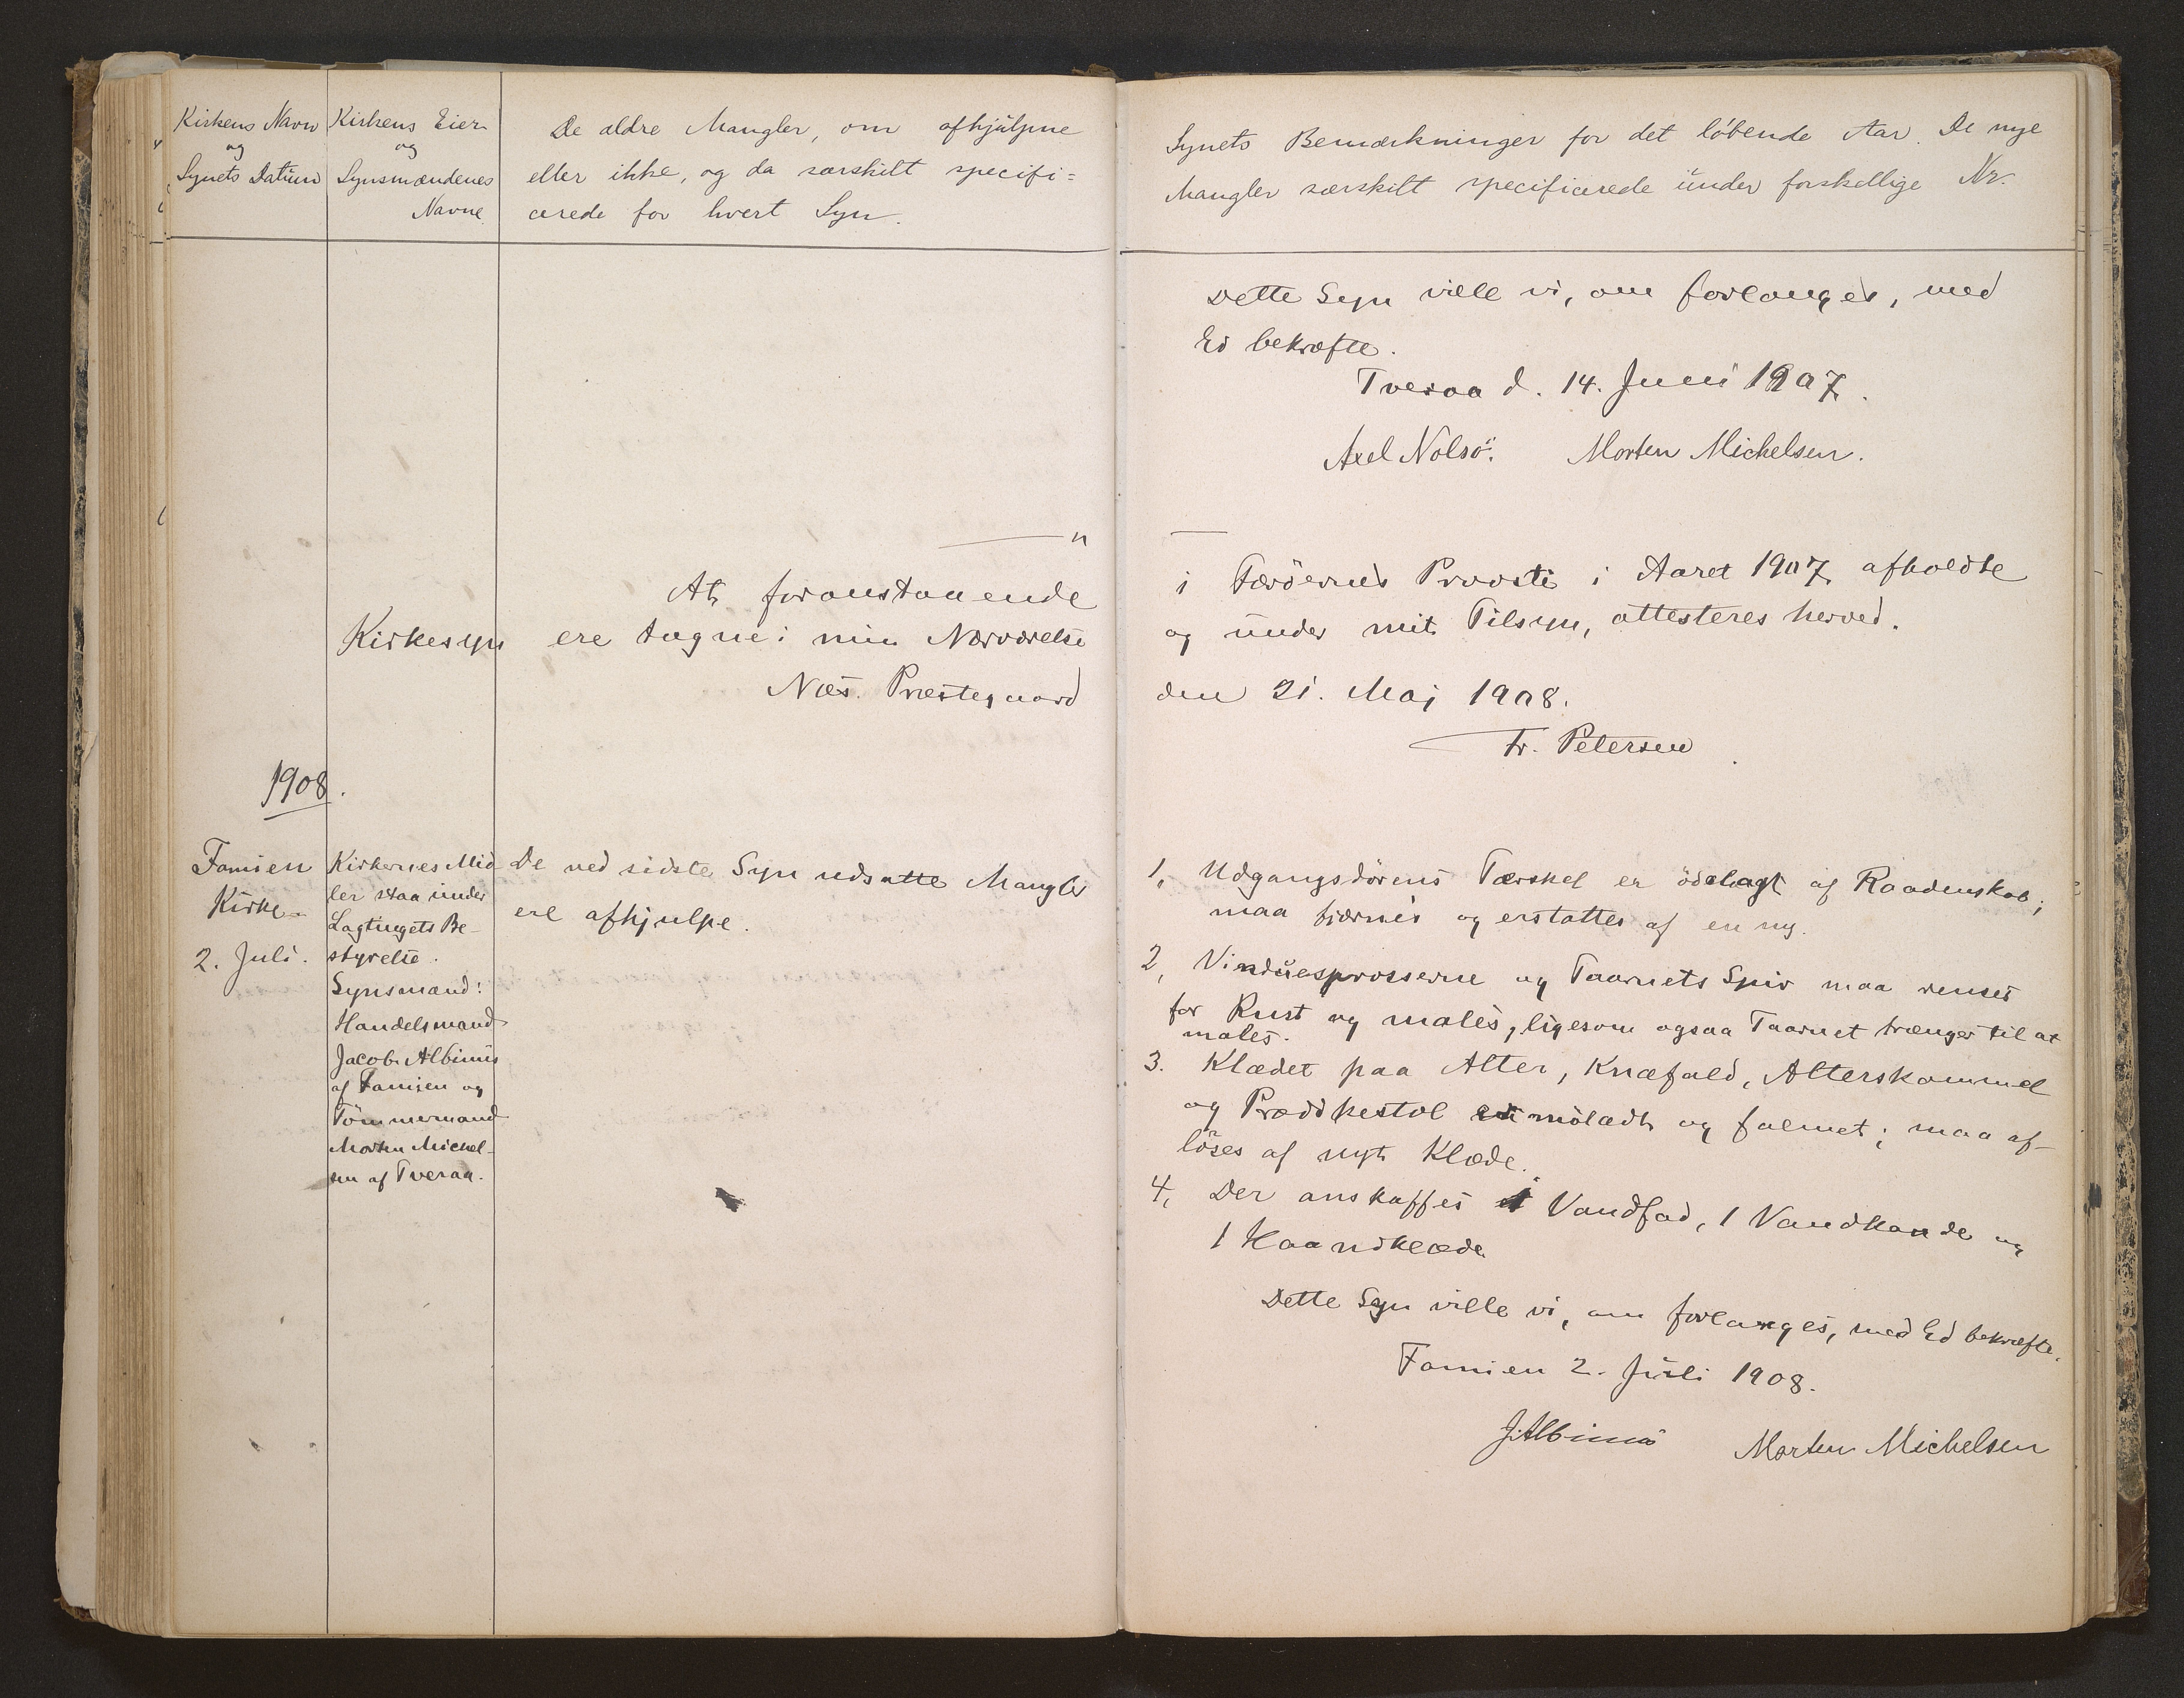 Kirkens Navn
og
Synets Datum
Kirkens Eier
og
Synsmændenes
Navne
De ældre Mangler, om afhjülpne
eller ikke, og da særskilt specifi=
cerede for hvert Syn.
Synets Bemærkninger for det löbende Aar. De nye
Mangler særskilt specificerede ünder forskellige Nr.
Dette Syn ville vi, om forlanges, med
Ed bekræfte.
Tveraa d. 14. Juni 1907.
Axel Nolsö. Morten Michelsen.
At foranstaaende
Kirkesyn ere tagne i min Nærværelse
Næs. Præstegaard
i Færöernes Provsti i Aaret 1907 afholdte
og ünder mit Tilsyn, attesteres herved.
den 21. Maj 1908.
Fr. Petersen
1908.
Famien
Kirke
2. Juli.
Kirkernes Mid
ler staa ünder
Lagtingets Be-
styrelse.
Synsmænd:
Handelsmand
Jacob Albinüs
af Famien og
Tömmermand
Morten Michel-
sen af Tveraa.
De ved sidste Syn udsatte Mangler
ere afhjulpe.
1, Udgangsdörens Tærskel er ödelagt af Raadenskab;
maa fjærnes og erstattes af en ny.
2, Vindüesprosserne og Taarnets Spir maa renses
for Rust og males, ligesom ogsaa Taarnet trænger til at
males.
3. Klædet paa Alter, Knæfald, Alterskammel
og Prædikestol er mölædt og falmet; maa af-
löses af nyt Klæde.
4, Der anskaffes 1 Vandfad, 1 Vandkande og
1 Haandklæde
Dette Syn ville vi, om forlanges, med Ed bekræfte.
Famien 2. Jüli 1908.
J. Albinus Morten Michelsen